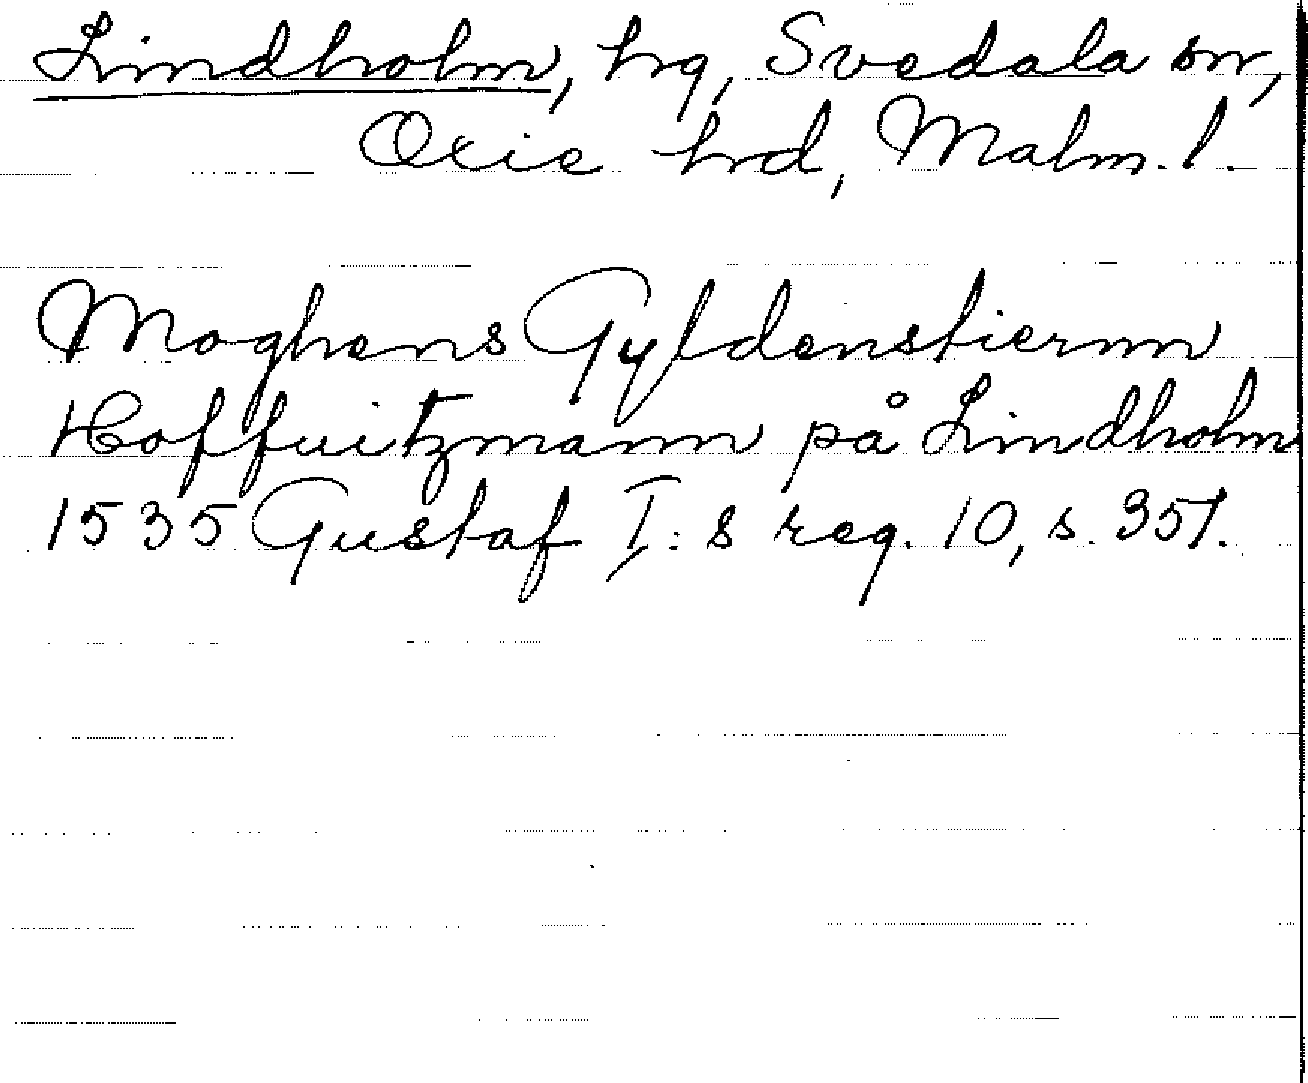 Lindholm, hg, Svedala sn,
Oxie hrd, Malm. l.
Moghens Gyldenstiernn
Hoffuitzmann på Lindholm
1535 Gustaf I:s reg. 10, s. 357.